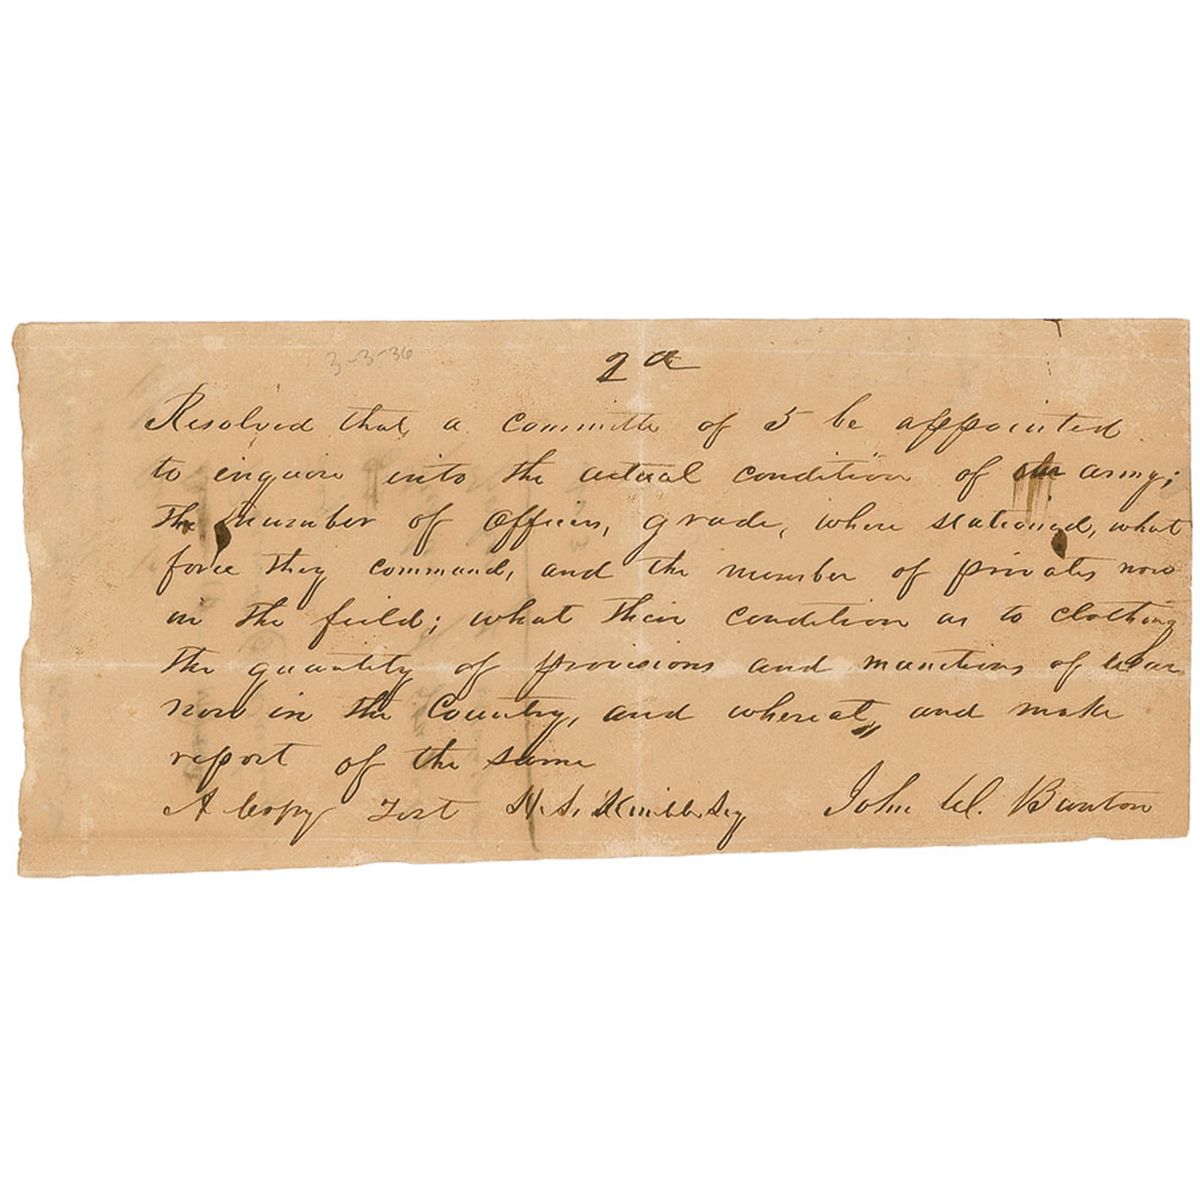 3-3-36
2d
Resolved that a committe of 5 be appointed
to enquire into the actual condition of the army;
the number of officers, grade, where stationed, what
force they command, and the number of privates now
in the field; what their condition as to clothing
the quantity of provisions and munitions of war
now in the Country, and where at, and make
report of the same
A Copy Test H. S. Kimble Secy John W. Bunton